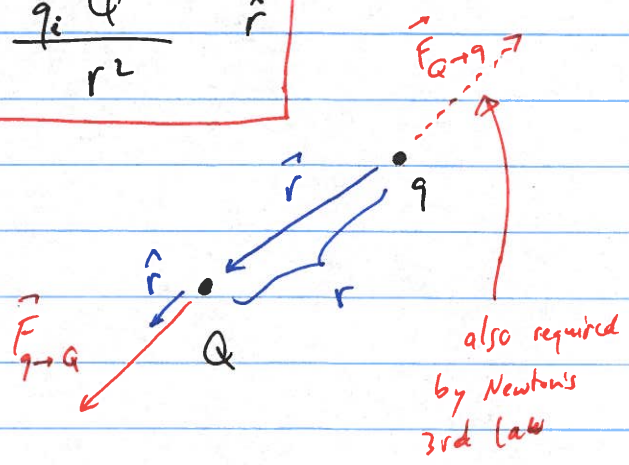 qᵢ Q r̂
r²
F⃗ Q→q
r⃗
q
r̂
r
F⃗ q→Q
Q
also required
by Newton's
3rd law